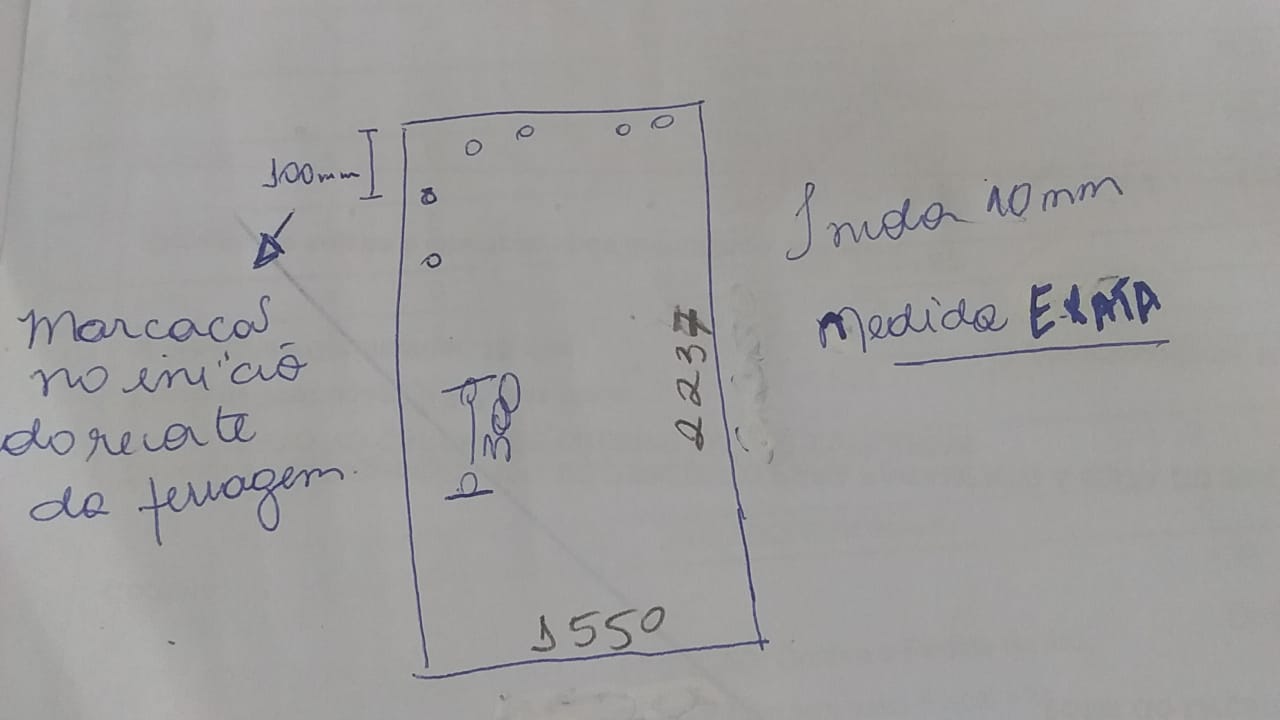 100mm
Marcacas
no inicio
do recorte
da ferragem.
300
2237
1550
10mm
Medida EXATA